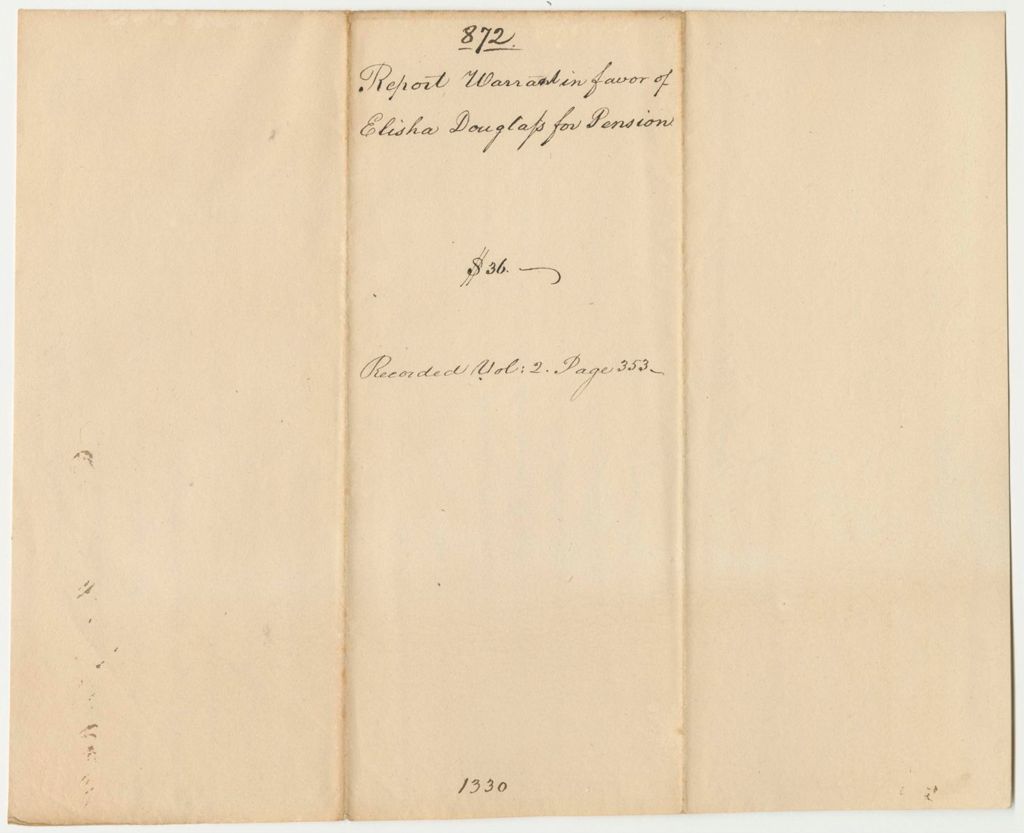 872.
Report Warrant in favor of
Elisha Douglass for Pension
$36.—
Recorded Vol: 2. Page 353—
1330